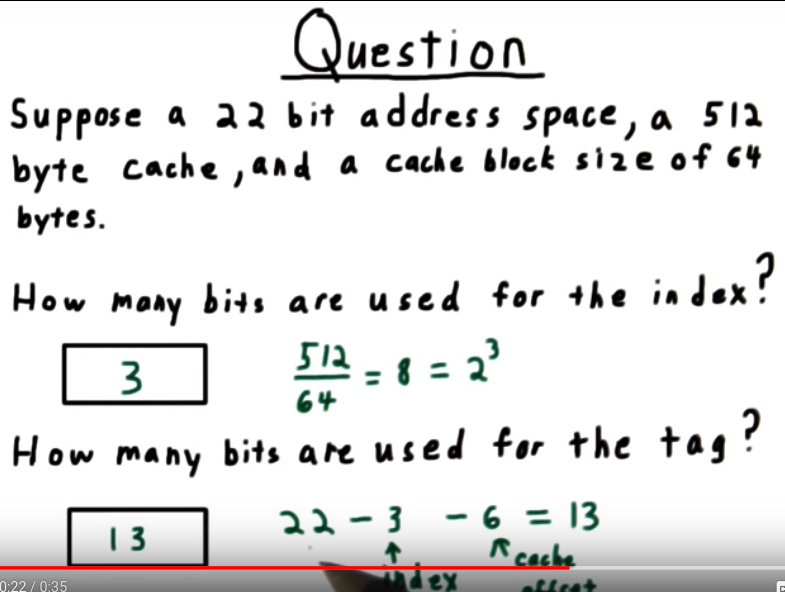 Question
Suppose a 22 bit address space, a 512
byte cache, and a cache block size of 64
bytes.
How many bits are used for the index?
3
512/64 = 8 = 2³
How many bits are used for the tag?
13
22 - 3 - 6 = 13
↑ ↖ cache
index offset
0:22 / 0:35